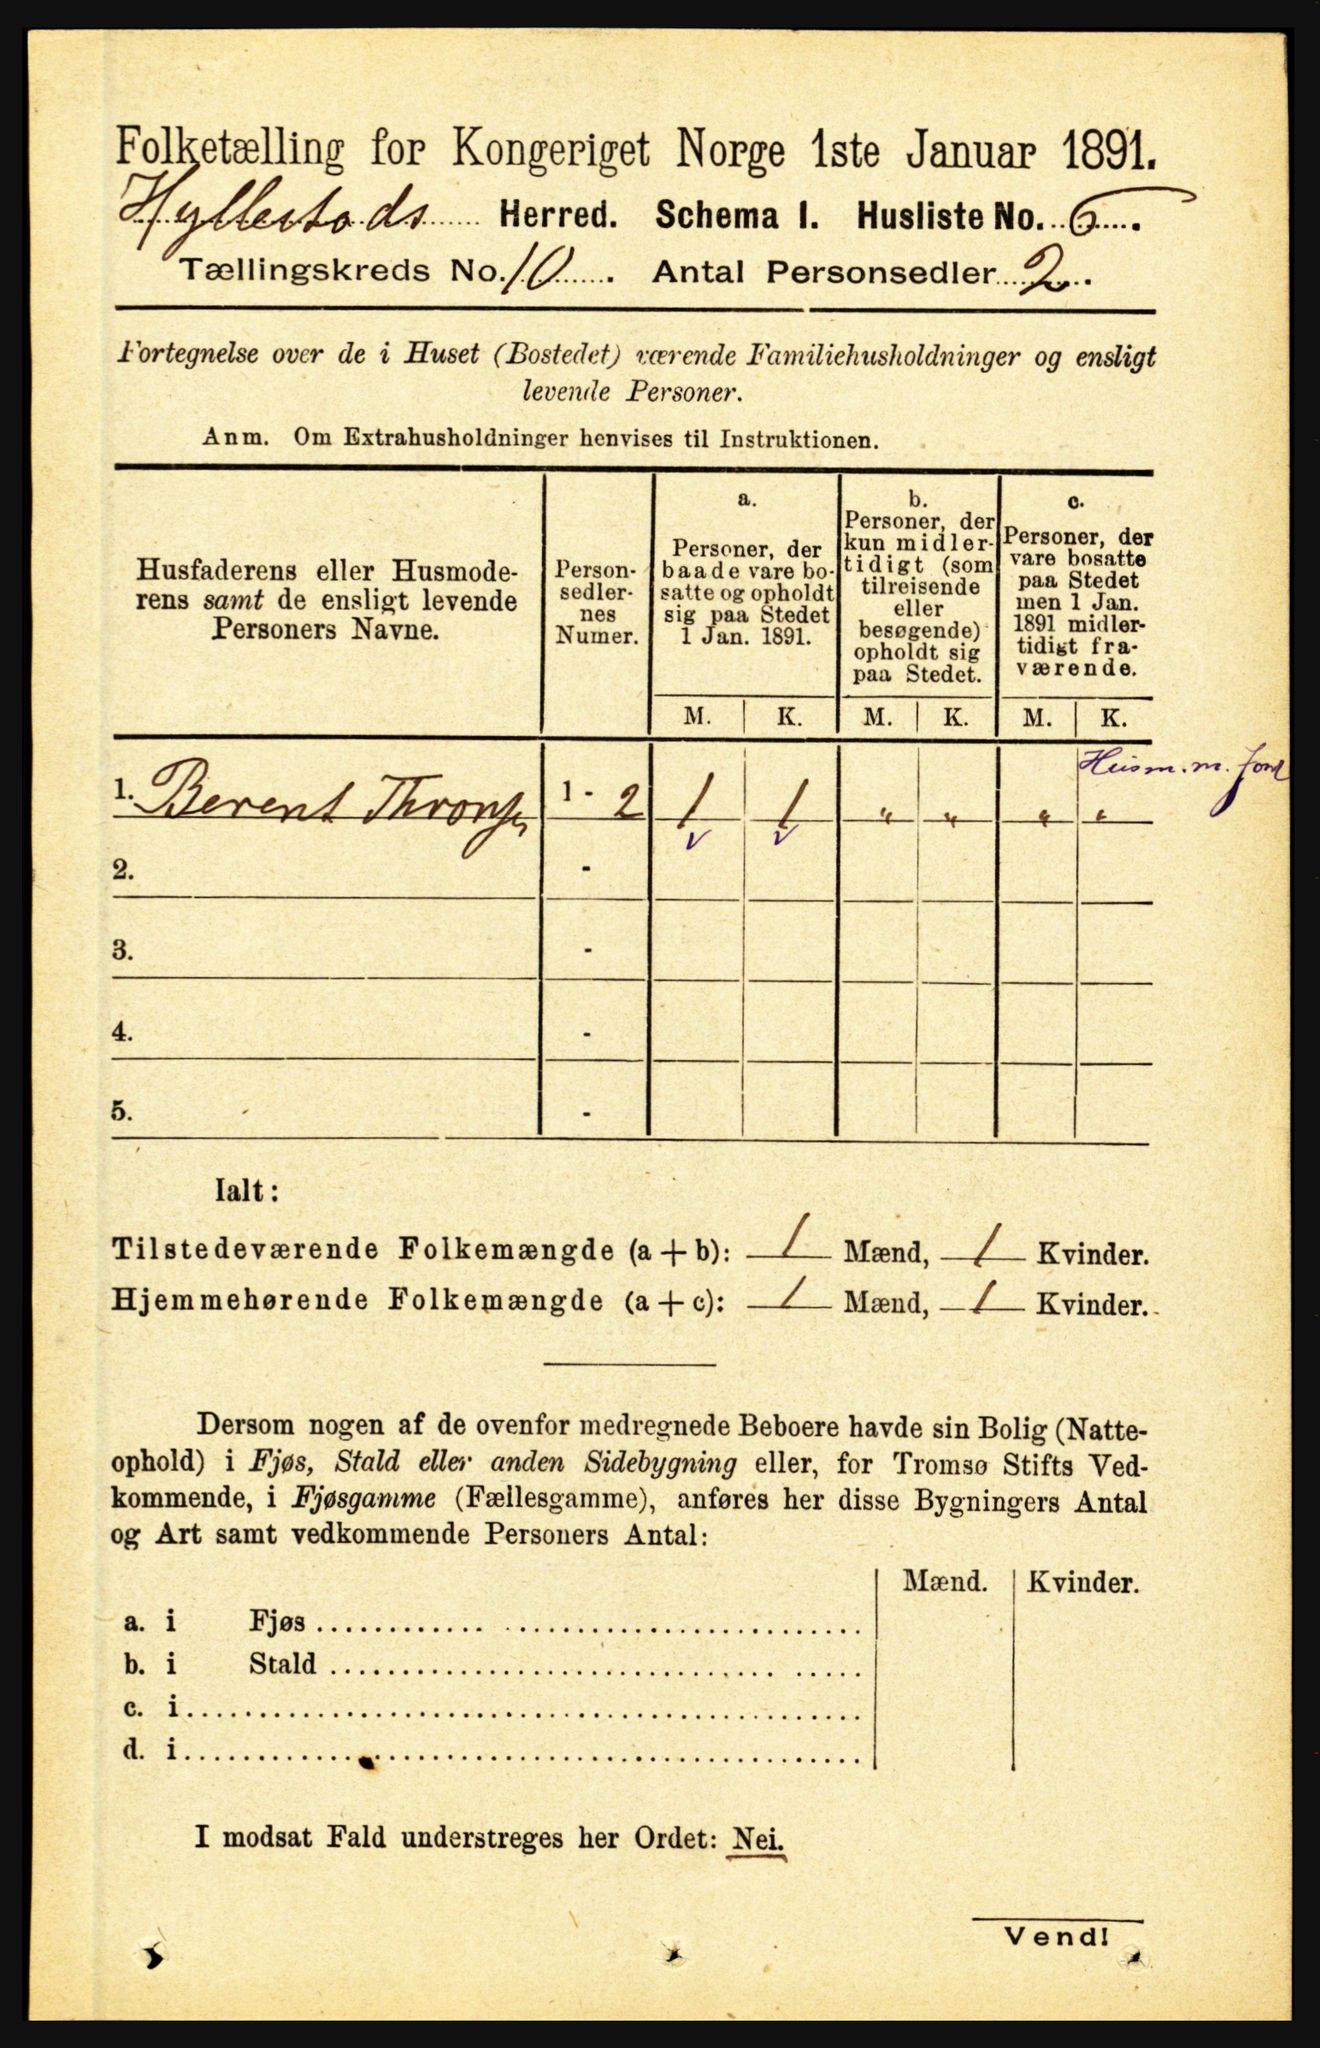 Folketælling for Kongeriget Norge 1ste Januar 1891.
Hyllestads Herred. Schema I. Husliste No. 6.
Tællingskreds No. 10. Antal Personsedler 2.
Fortegnelse over de i Huset (Bostedet) værende Familiehusholdninger og ensligt
levende Personer.
Anm. Om Extrahusholdninger henvises til Instruktionen.
Husfaderens eller Husmode-
rens samt de ensligt levende
Personers Navne.
Person-
sedler-
nes
Numer.
a.
Personer, der
baade vare bo-
satte og opholdt
sig paa Stedet
1 Jan. 1891.
b.
Personer, der
kun midler-
tidigt (som
tilreisende
eller
besøgende)
opholdt sig
paa Stedet.
c.
Personer, der
vare bosatte
paa Stedet
men 1 Jan.
1891 midler-
tidigt fra-
værende.
M. K. M. K. M. K.
Husm. m. Jord
1. Berent Thronsen 1 - 2 1 1 " " " "
v v
2. -
3. -
4. -
5. -
Ialt:
Tilstedeværende Folkemængde (a + b): 1 Mænd, 1 Kvinder.
Hjemmehørende Folkemængde (a + c): 1 Mænd, 1 Kvinder.
Dersom nogen af de ovenfor medregnede Beboere havde sin Bolig (Natte-
ophold) i Fjøs, Stald eller anden Sidebygning eller, for Tromsø Stifts Ved-
kommende, i Fjøsgamme (Fællesgamme), anføres her disse Bygningers Antal
og Art samt vedkommende Personers Antal:
Mænd. Kvinder.
a. i Fjøs
b. i Stald
c. i
d. i
I modsat Fald understreges her Ordet: Nei.
Vend!